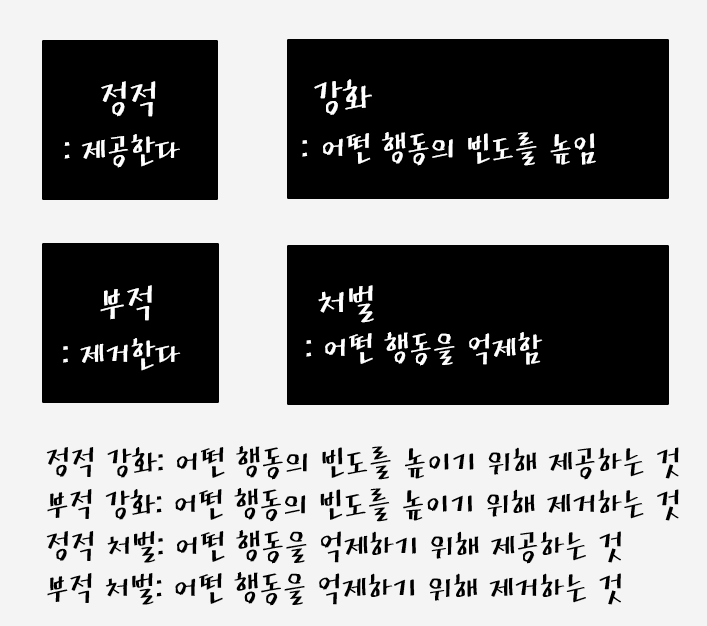 정적
: 제공한다
강화
: 어떤 행동의 빈도를 높임
부적
: 제거한다
처벌
: 어떤 행동을 억제함
정적 강화: 어떤 행동의 빈도를 높이기 위해 제공하는 것
부적 강화: 어떤 행동의 빈도를 높이기 위해 제거하는 것
정적 처벌: 어떤 행동을 억제하기 위해 제공하는 것
부적 처벌: 어떤 행동을 억제하기 위해 제거하는 것